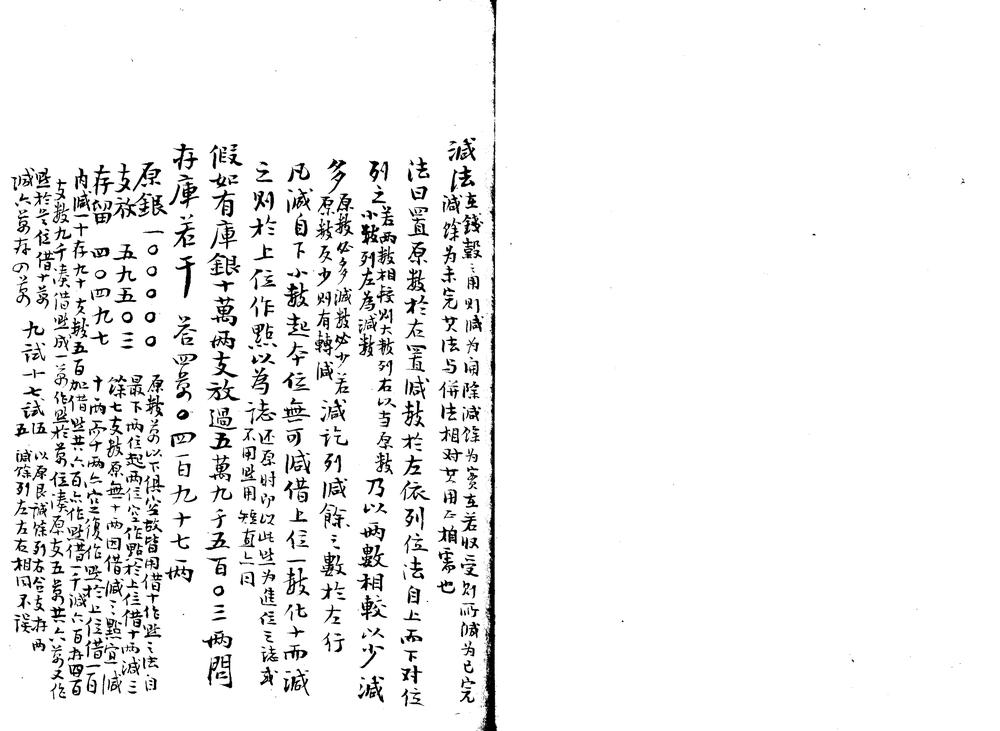 減法 在錢穀之用則減為開除減餘為實在若収受則所減為已完
減餘為未完其法与併法相対其用正相需也
法曰置原数於右置減数於左依列位法自上而下对位
列之 若兩数相接則大数列右以当原数
小数列左為減数 乃以兩數相較以少減
多 原数必多減数必少若
原数反少則有轉減 減訖列減餘之數於左行
凡減自下小数起夲位無可減借上位一数化十而減
之則於上位作點以為誌 还原時即以此㸃為進位之誌或
不用㸃用短直亦同
假如有庫銀十萬兩支放過五萬九千五百〇三兩問
存庫若干 荅四萬〇四百九十七兩
原銀 一〇〇〇〇〇 原数萬以下俱空故皆用借十作㸃之法自
支放 五九五〇三 最下兩位起兩位空作點於上位借十兩減三
存留 四〇四九七 餘七支数原無十兩因借減之點宜減
十兩而十兩亦空復作㸃於上位借一百
内減一十存九十支数五百加借㸃共六百亦作㸃借一千減六百存四百
支数九千湊借㸃成一萬作㸃於萬位湊原支五萬共六萬又作
㸃於首位借十萬 九試 十七試 五 以原民試餘列右合支存兩
減六萬存四萬 五 減餘列左左右相同不誤